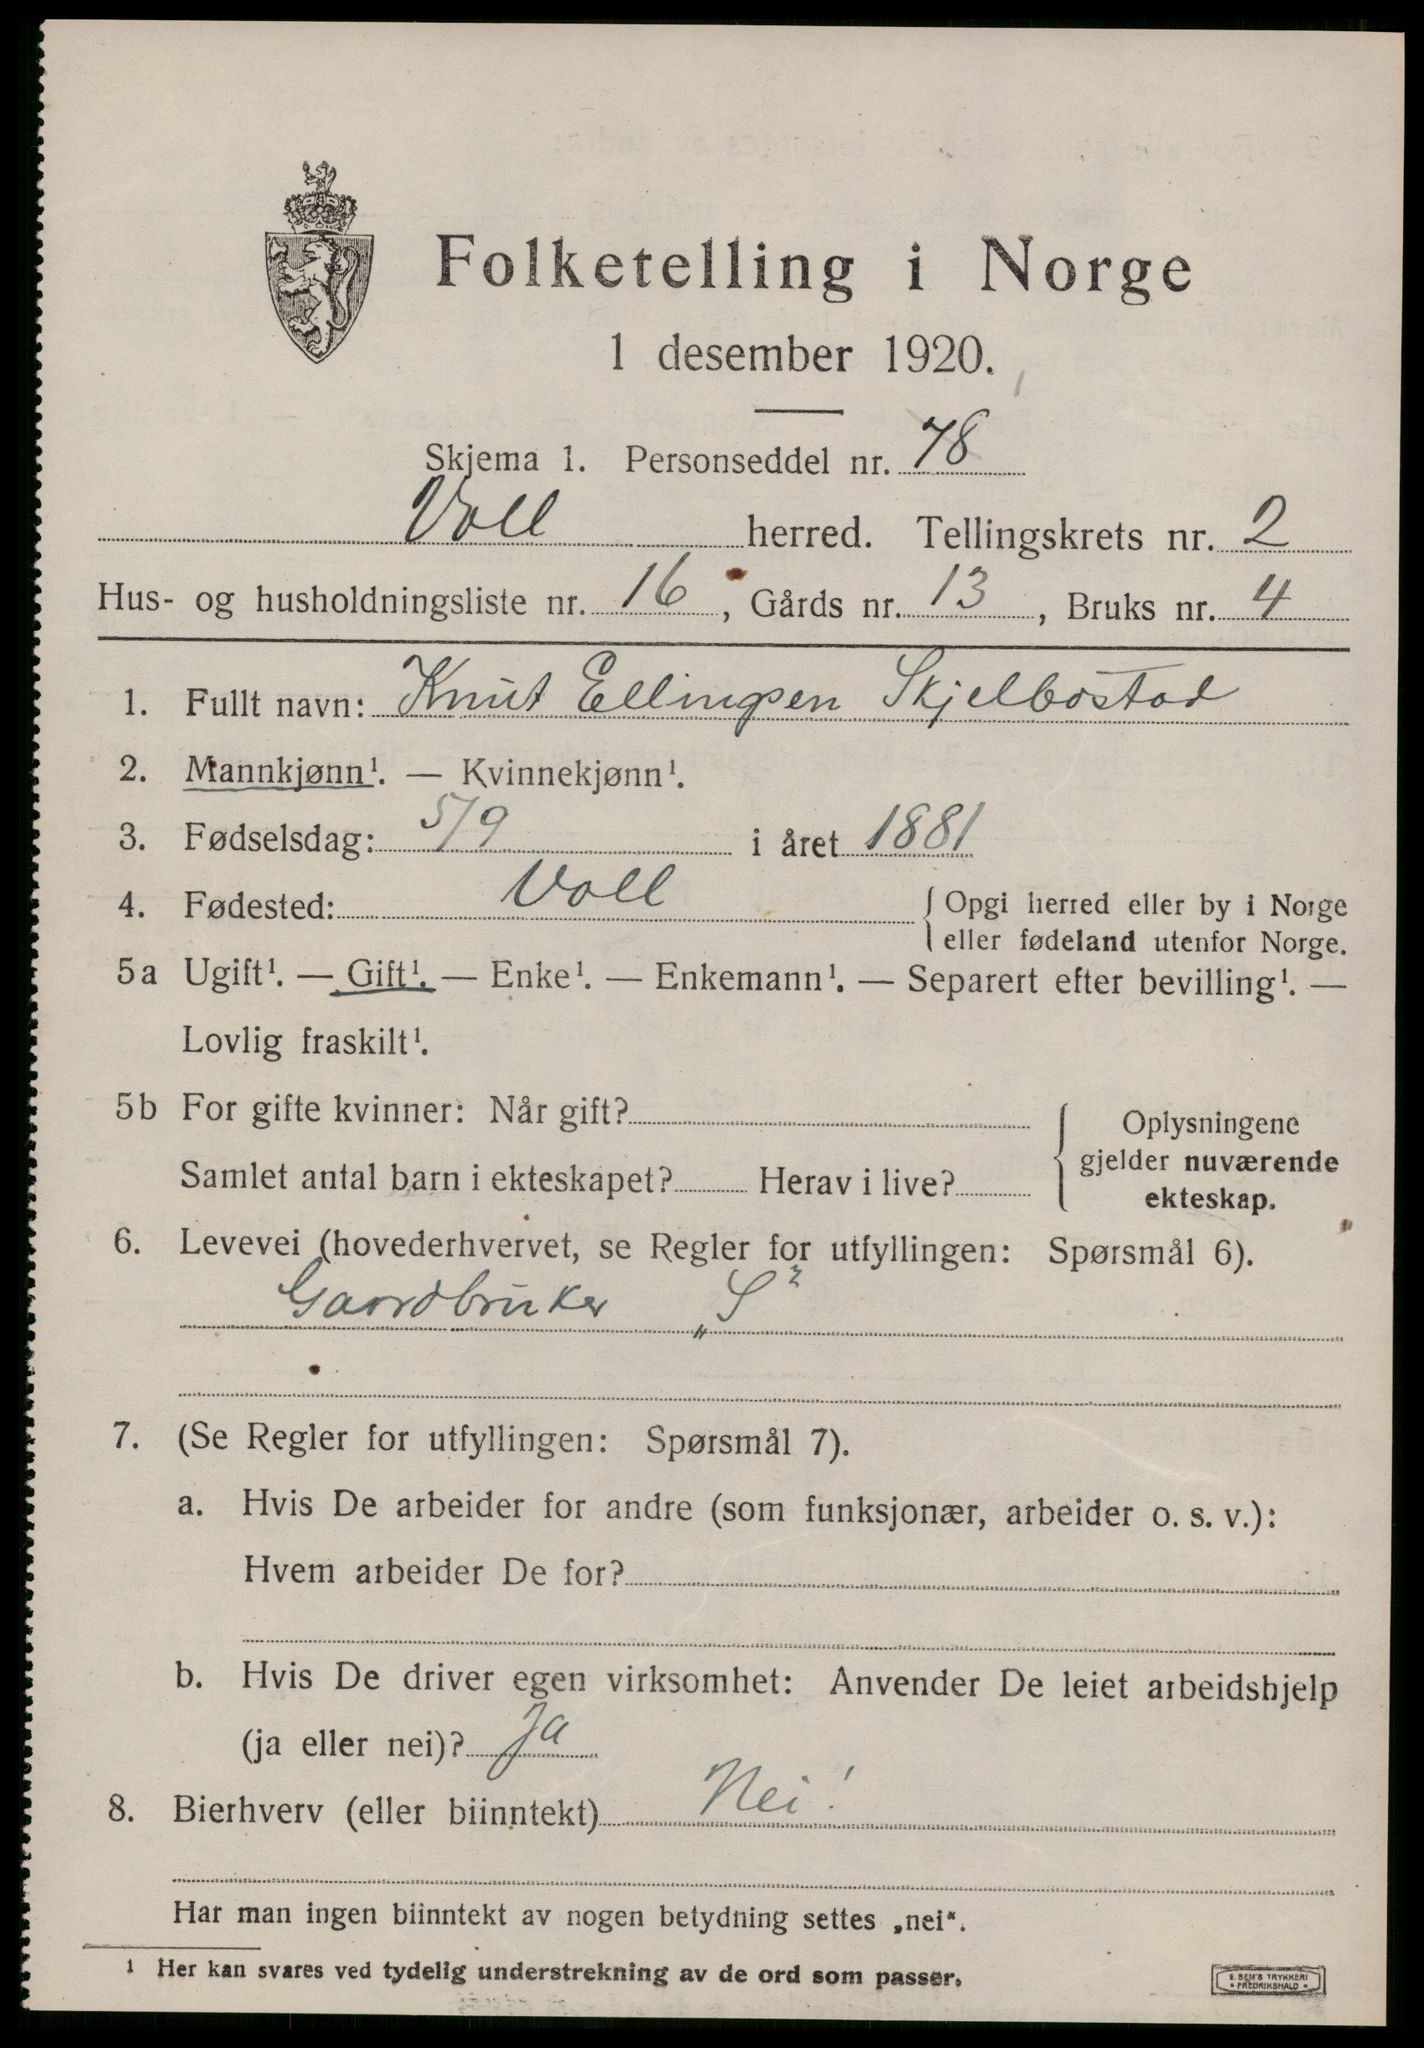 Folketelling i Norge
1 desember 1920.
Skjema 1. Personseddel nr. 78
Voll herred. Tellingskrets nr. 2
Hus- og husholdningsliste nr. 16, Gårds nr. 13, Bruks nr. 4
1. Fullt navn: Knut Ellingsen Skjelbostad
2. Mannkjønn¹. — Kvinnekjønn¹.
3. Fødselsdag: 5/9 i året 1881
4. Fødested: Voll { Opgi herred eller by i Norge
eller fødeland utenfor Norge.
5a Ugift¹. — Gift¹. — Enke¹. — Enkemann¹. — Separert efter bevilling¹. —
Lovlig fraskilt¹.
5b For gifte kvinner: Når gift?
Samlet antal barn i ekteskapet? Herav i live?
{ Oplysningene
gjelder nuværende
ekteskap.
6. Levevei (hovederhvervet, se Regler for utfyllingen: Spørsmål 6).
Gaardbruker „S"
7. (Se Regler for utfyllingen: Spørsmål 7).
a. Hvis De arbeider for andre (som funksjonær, arbeider o. s. v.):
Hvem arbeider De for?
b. Hvis De driver egen virksomhet: Anvender De leiet arbeidshjelp
(ja eller nei)? Ja
8. Bierhverv (eller biinntekt) Nei!
Har man ingen biinntekt av nogen betydning settes „nei".
¹ Her kan svares ved tydelig understrekning av de ord som passer.
E. SEM'S TRYKKERI
• FREDRIKSHALD •